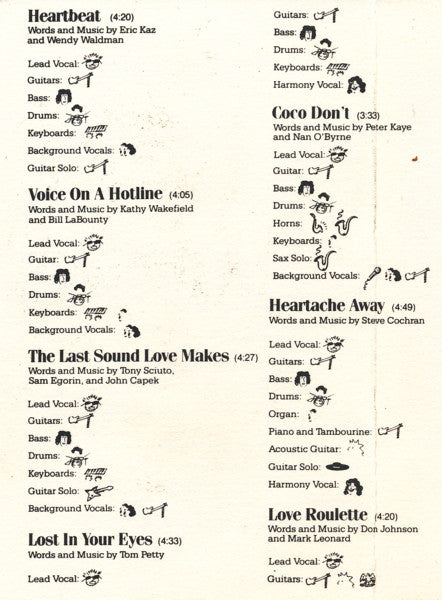 Heartbeat (4:20)
Words and Music by Eric Kaz
and Wendy Waldman
Lead Vocal:
Guitars:
Bass:
Drums:
Keyboards:
Background Vocals:
Guitar Solo:
Voice On A Hotline (4:05)
Words and Music by Kathy Wakefield
and Bill LaBounty
Lead Vocal:
Guitar:
Bass:
Drums:
Keyboards:
Background Vocals:
The Last Sound Love Makes (4:27)
Words and Music by Tony Sciuto,
Sam Egorin, and John Capek
Lead Vocal:
Guitars:
Bass:
Drums:
Keyboards:
Guitar Solo:
Background Vocals:
Lost In Your Eyes (4:33)
Words and Music by Tom Petty
Lead Vocal:
Guitars:
Bass:
Drums:
Keyboards:
Harmony Vocal:
Coco Don't (3:33)
Words and Music by Peter Kaye
and Nan O'Byrne
Lead Vocal:
Guitar:
Bass:
Drums:
Horns:
Keyboards:
Sax Solo:
Background Vocals:
Heartache Away (4:49)
Words and Music by Steve Cochran
Lead Vocal:
Guitars:
Bass:
Drums:
Organ:
Piano and Tambourine:
Acoustic Guitar:
Guitar Solo:
Harmony Vocal:
Love Roulette (4:20)
Words and Music by Don Johnson
and Mark Leonard
Lead Vocal:
Guitars: